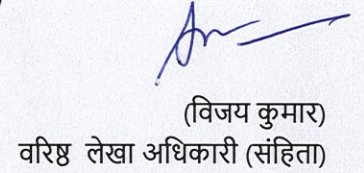 (विजय कुमार)
वरिष्ठ लेखा अधिकारी (संहिता)